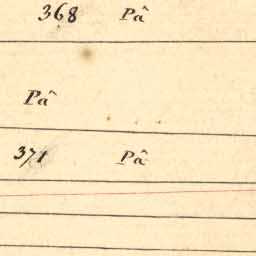 368 Pâ
Pâ
371 Pâ